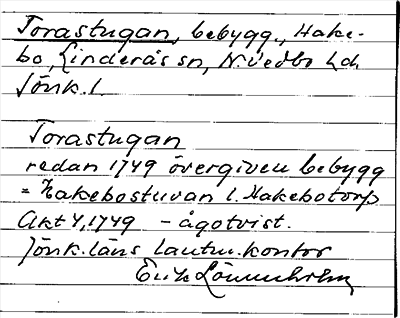 Torastugan, bebygg., Hake-
bo, Linderås sn, N. Vedbo hd.
Jönk. l.
Torastugan
redan 1749 övergiven bebygg
= Hakebostuvan l. Hakebotorp
Akt 4, 1749 - ägotvist.
Jönk. läns lantm. kontor
Erik Lönnerholm